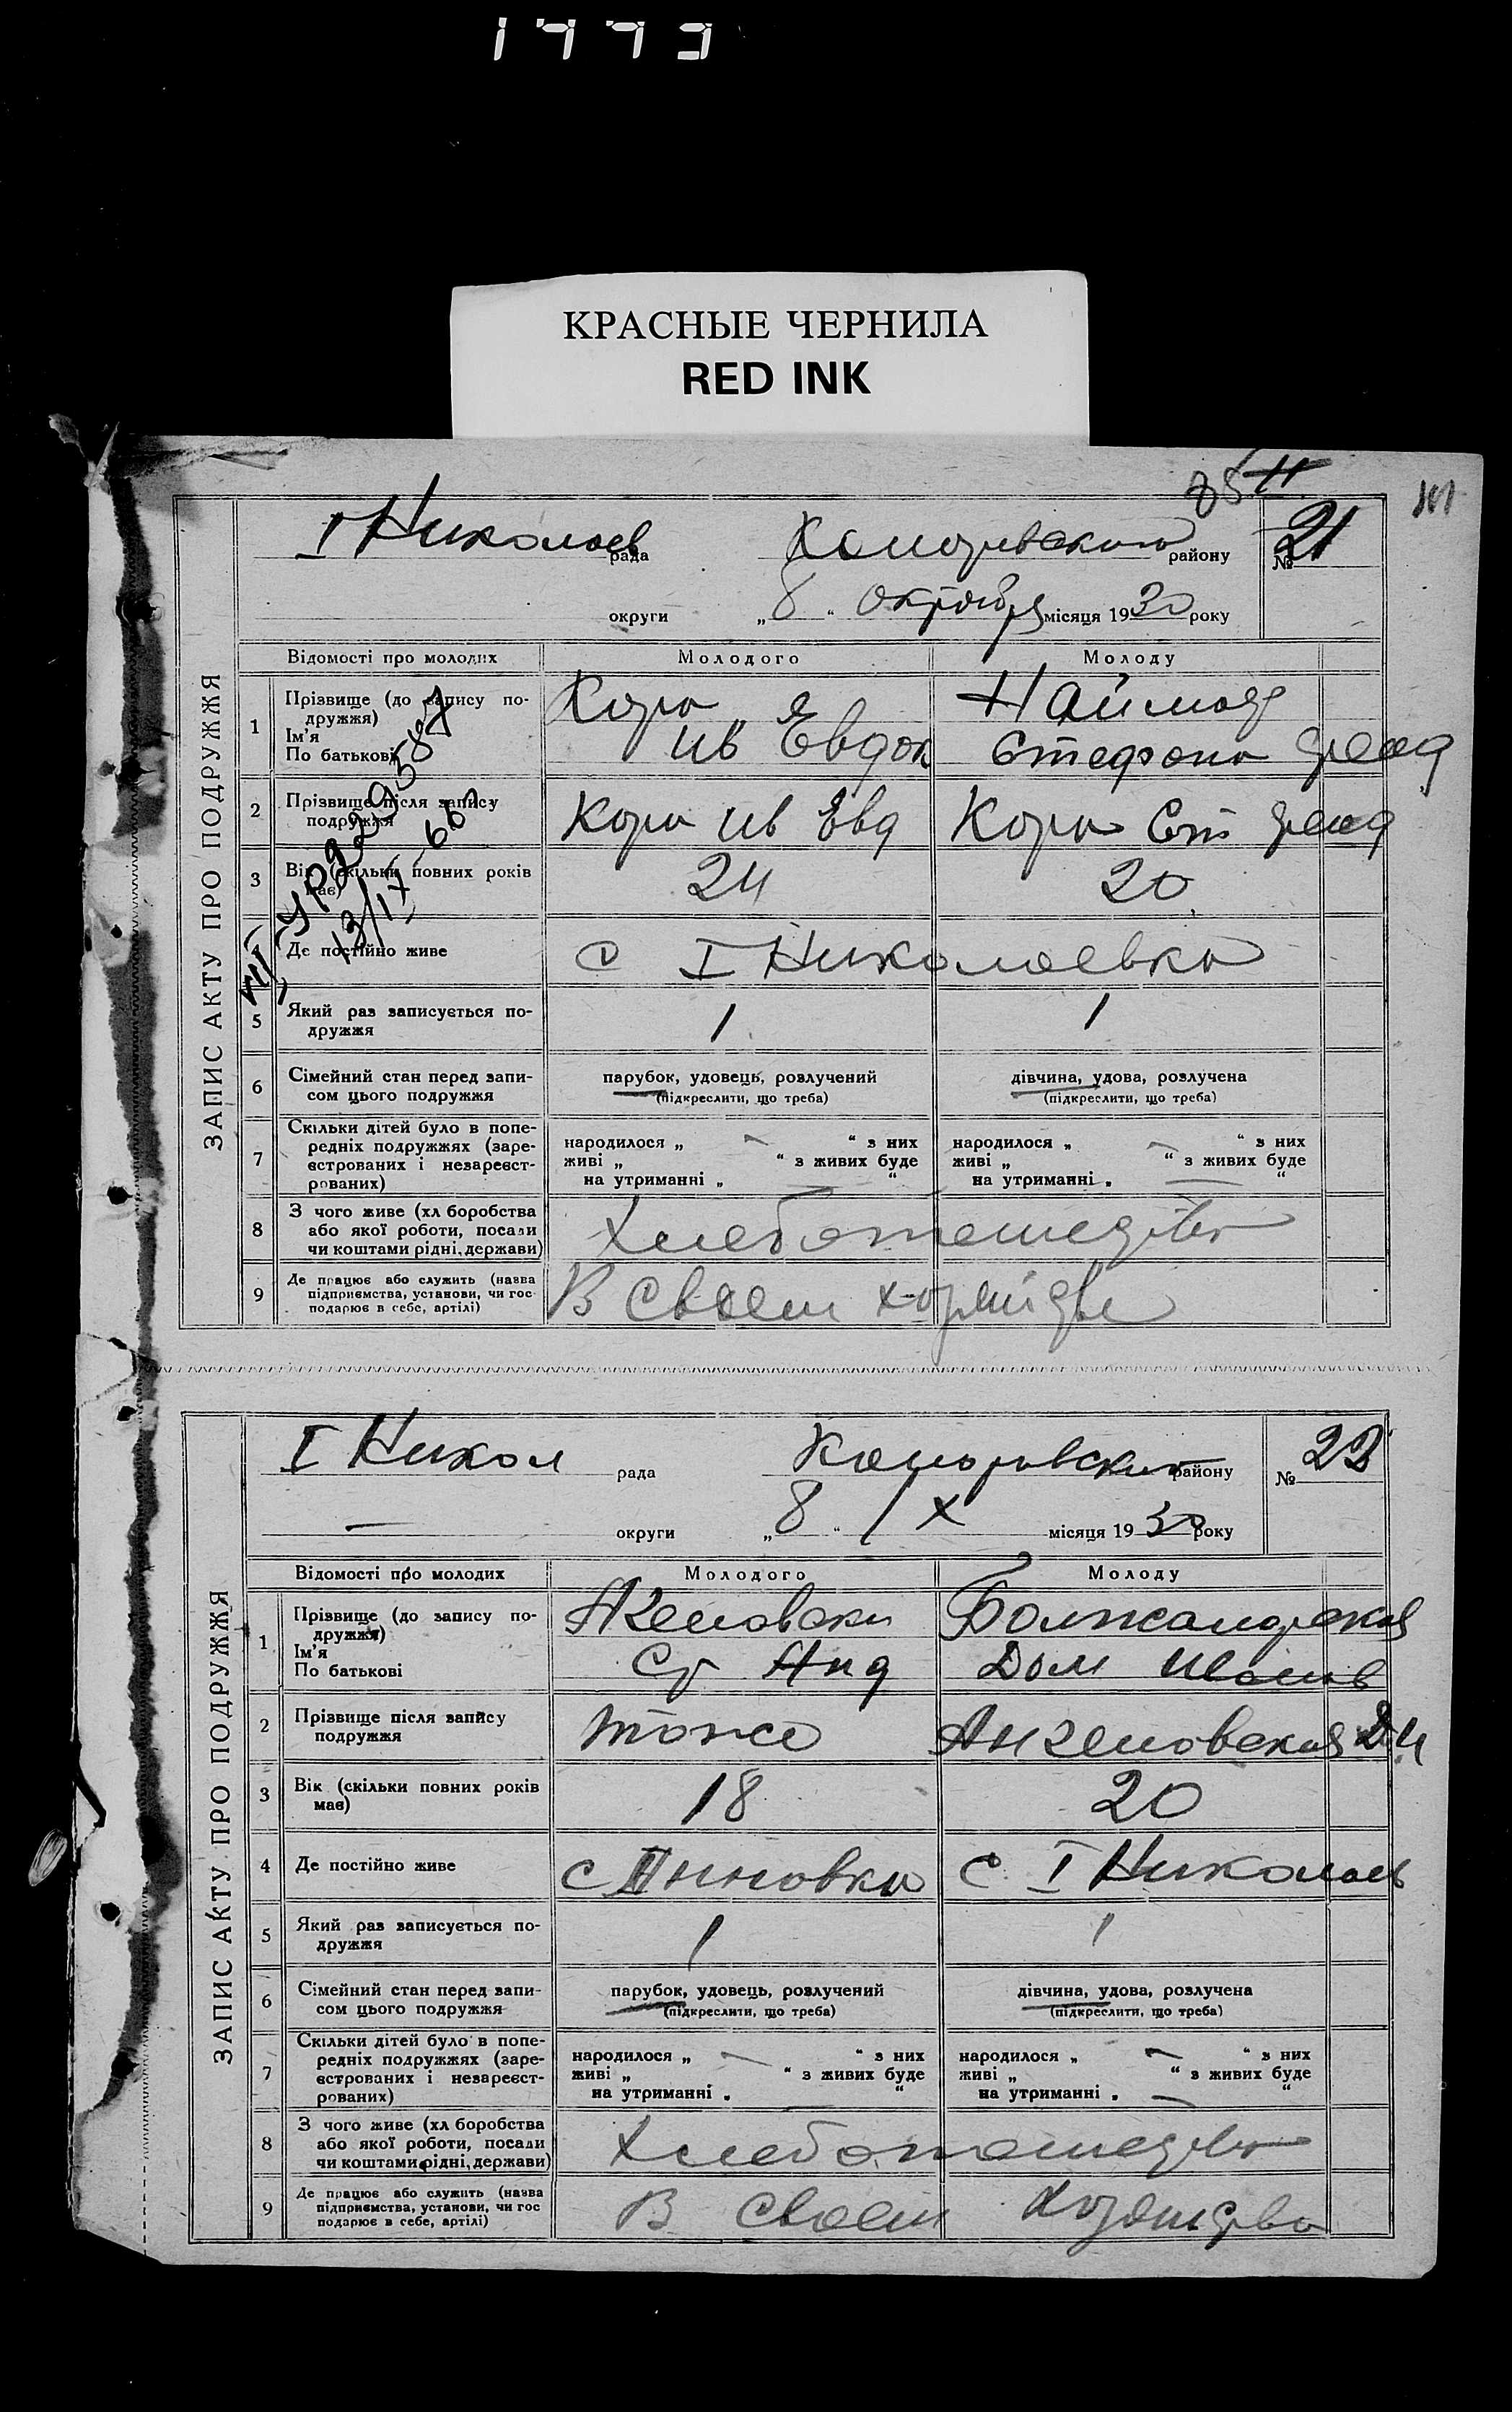 1993
КРАСНЫЕ ЧЕРНИЛА
RED INK
I Николаев рада района
№ 21
округи „ 8 “ октября місяця 1930 року
ЗАПИС АКТУ ПРО ПОДРУЖЖЯ
Відомості про молодих Молодого Молоду
1 Прізвище (до запису по-
дружжя)
Ім'я
По батькові
Кора
ив Евдок Стефана
2 Прізвище після запису
подружжя
Кора ив Евд Кора Ст
3 Вік (скільки повних років
має)
24 20
Де постійно живе с I Николаевка
5 Який раз записується по-
дружжя
1 1
6 Сімейний стан перед запи-
сом цього подружжя
парубок, удовець, розлучений дівчина, удова, розлучена
(підкреслити, що треба) (підкреслити, що треба)
7 Скільки дітей було в попе-
редніх подружжях (заре-
єстрованих і незареєст-
рованих)
народилося „ — “ з них народилося „ — “ з них
живі „ “ з живих буде живі „ “ з живих буде
на утриманні „ — “ на утриманні „ — “
8 З чого живе (хл боробства
або якої роботи, посади
чи коштами рідні, держави)
9 Де працює або служить (назва
підприємства, установи, чи гос
подарює в себе, артілі)
В своем
I Никол рада району
№ 22
— округи „ 8 “ / X місяця 1930 року
ЗАПИС АКТУ ПРО ПОДРУЖЖЯ
Відомості про молодих Молодого Молоду
1 Прізвище (до запису по-
дружжя)
Ім'я
По батькові
Дом Иванов
2 Прізвище після запису
подружжя
тоже Ангеловская Д.И
3 Вік (скільки повних років
має)
18 20
4 Де постійно живе с с. I Николаев
5 Який раз записується по-
дружжя
1 1
6 Сімейний стан перед запи-
сом цього подружжя
парубок, удовець, розлучений дівчина, удова, розлучена
(підкреслити, що треба) (підкреслити, що треба)
7 Скільки дітей було в попе-
редніх подружжях (заре-
єстрованих і незареєст-
рованих)
народилося „ — “ з них народилося „ — “ з них
живі „ “ з живих буде живі „ “ з живих буде
на утриманні „ — “ на утриманні „ — “
8 З чого живе (хл боробства
або якої роботи, посади
чи коштами рідні, держави)
9 Де працює або служить (назва
підприємства, установи, чи гос
подарює в себе, артілі)
В своем